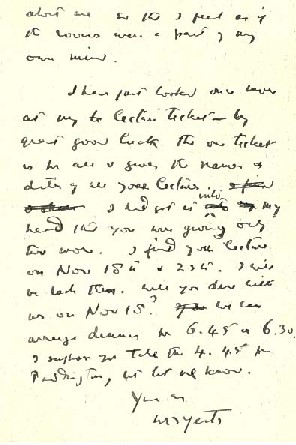 about me so that I feel as if
the rooms were a part of my
own mind.
I have just looked once more
at my lecture ticket — by
great good luck the one ticket
is for all & gives the names &
dates of all your lectures.
I had got it into my
head that you were giving only
two more. I find you lecture
on Nov 18th & 25th. I will
be back then. Will you dine with
us on Nov 18? We can
arrange dinner for 6.45 or 6.30.
I suppose you take the 4.45 for
Paddington, but let me know.
Yrs ev
WBYeats